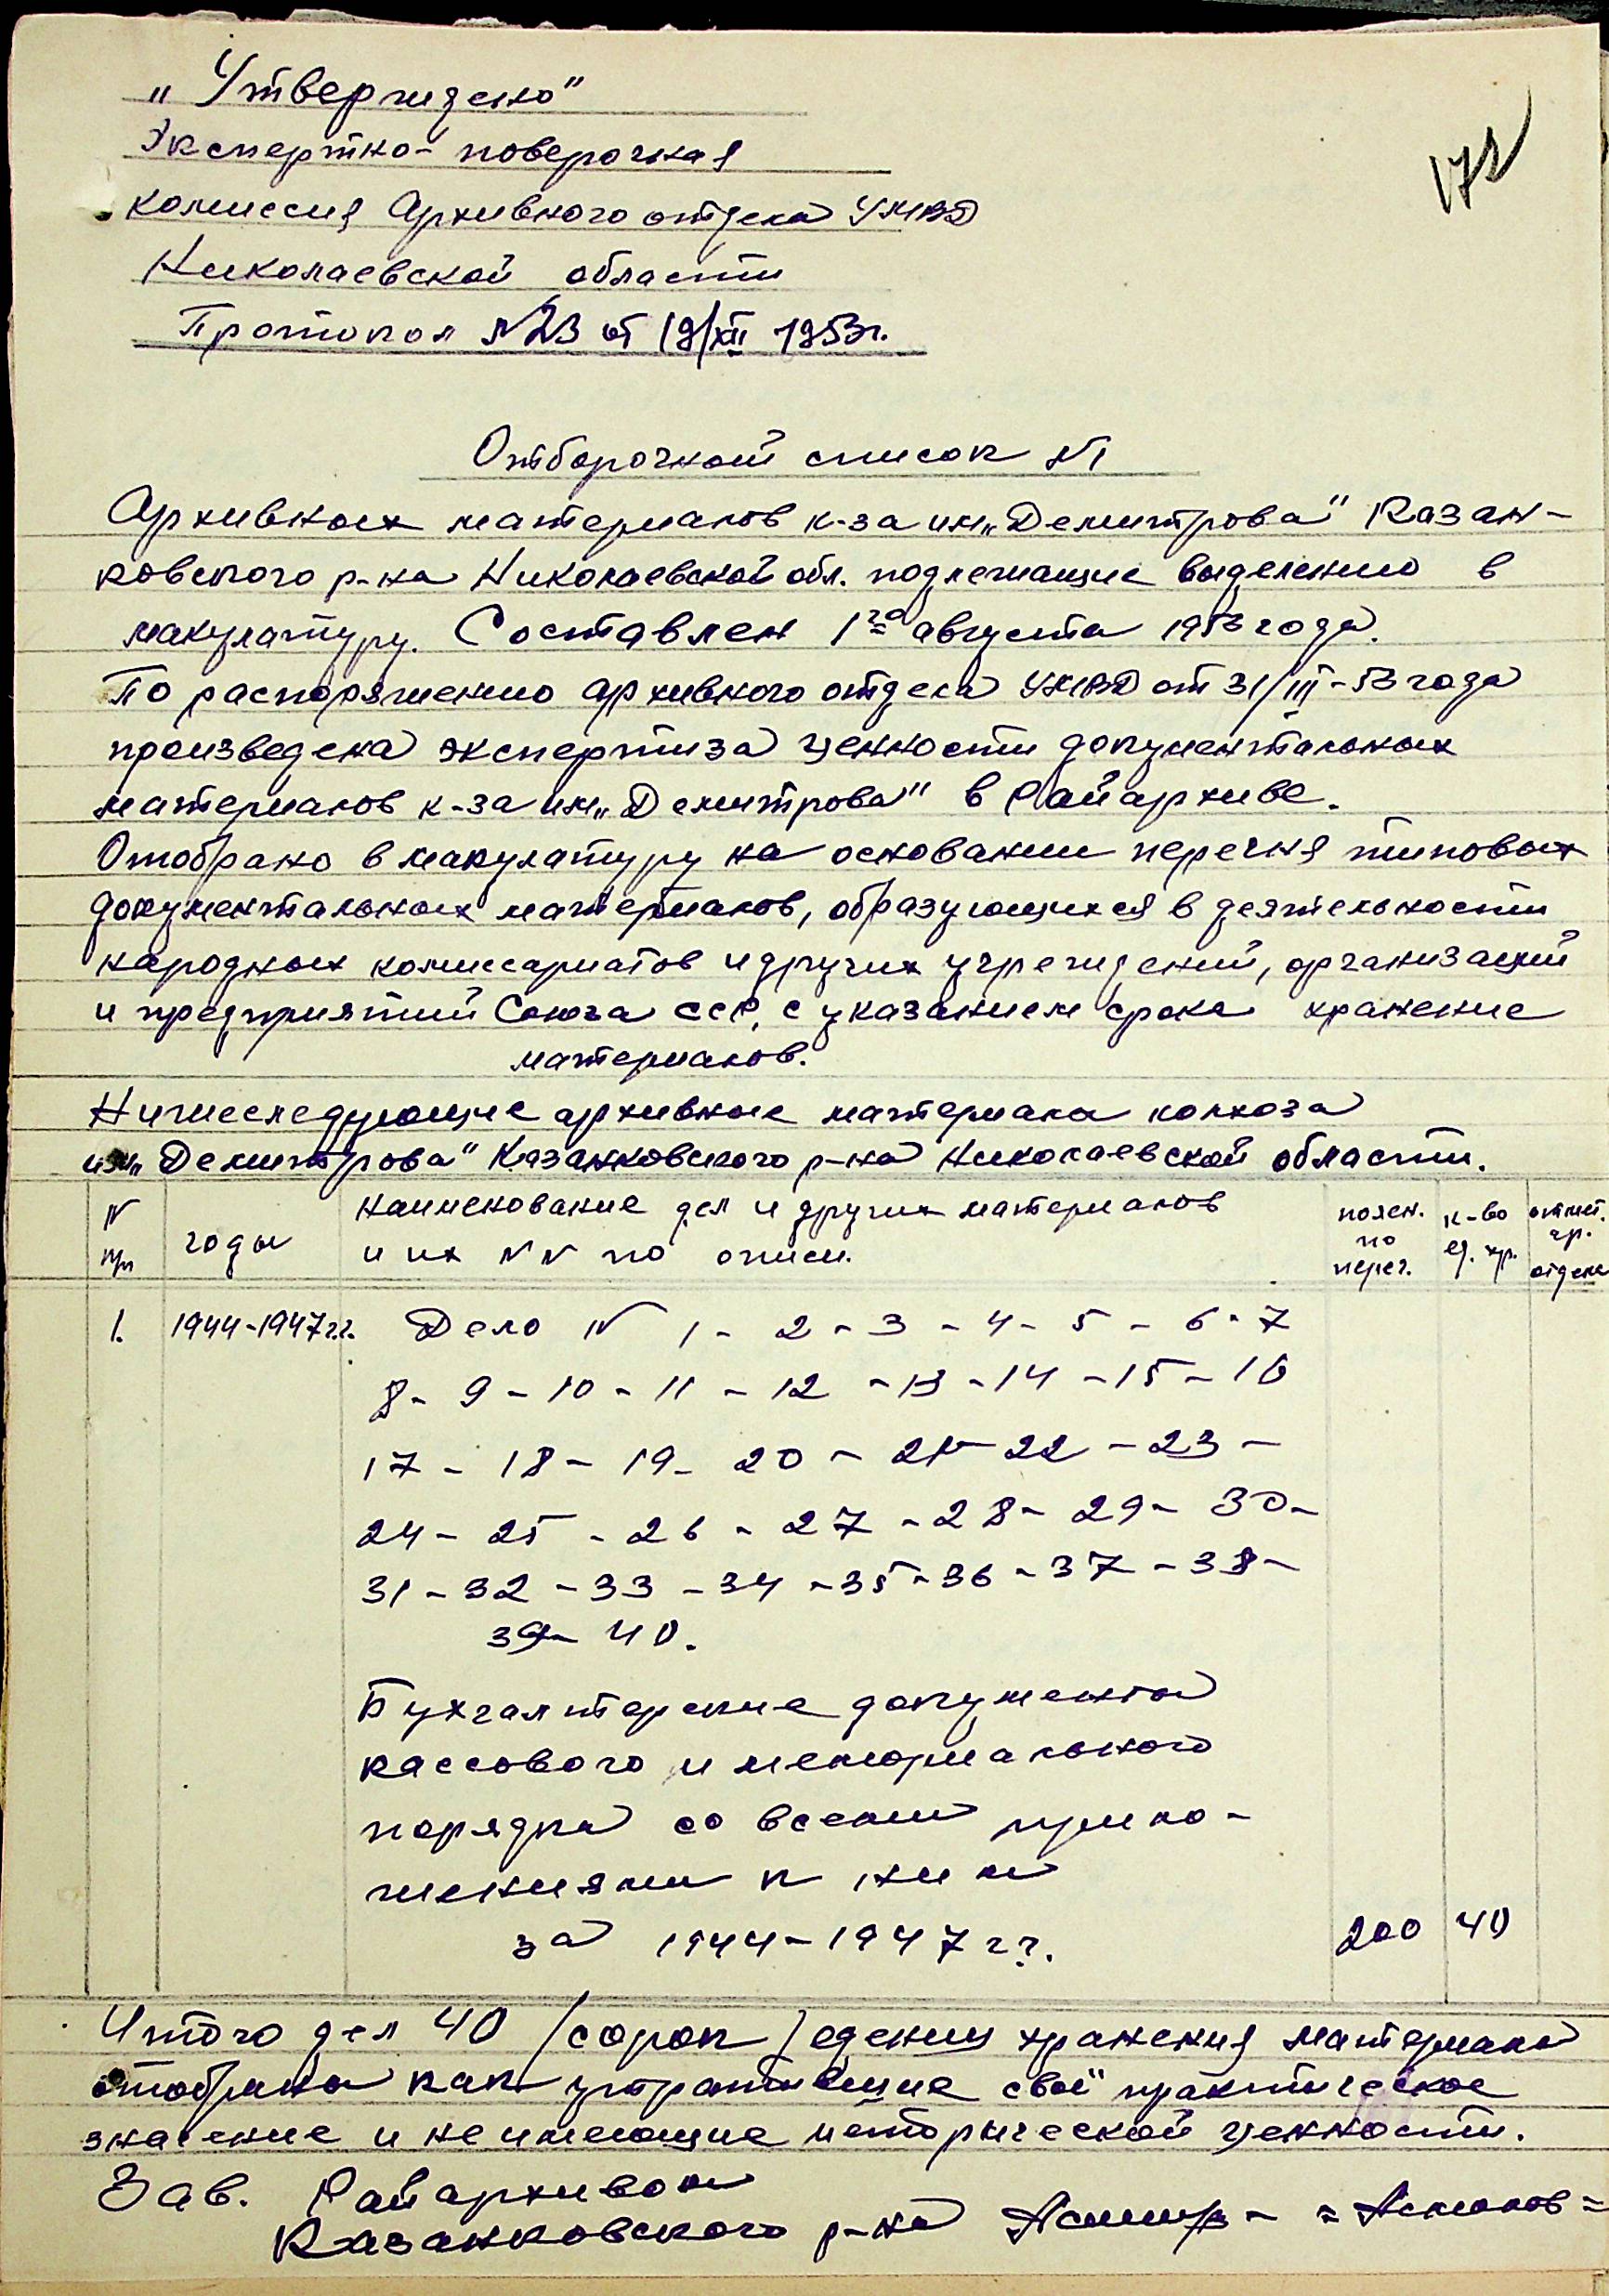 „Утверждено"
172
Экспертно-поверочная
комиссия Архивного отдела УМВД
Николаевской области
Протокол №23 от 19/XII 1953г.
Отборочный список №1
Архивных материалов к-за им„Демитрова" Казан-
ковского р-на Николаевской обл. подлежащие выделению в
макулатуру. Составлен 1го августа 1953 года.
По распоряжению архивного отдела УМВД от 31/III-53 года
произведена экспертиза ценности документальных
материалов к-за им„Демитрова" в Райархиве.
Отобрано в макулатуру на основании перечня типовых
документальных материалов, образующихся в деятельности
народных комиссариатов и других учреждений, организаций
и предприятий Союза ССР, с указанием срока хранение
материалов.
Нижеследующие архивные материала колхоза
им„Демитрова" Казанковского р-на Николаевской области.
№ пп годы наименование дел и других материалов и их №№ по описи. по перег. к-во ед. хр. отмет. ар. отдела
1. 1944-1947г.г. Дело № 1- 2-3-4-5-6-7
8-9-10-11-12-13-14-15-16
17-18-19-20-21-22-23-
24-25-26-27-28-29-30-
31-32-33-34-35-36-37-38-
39-40.
Бухгалтерские документы
кассового и мемориального
порядка со всеми прило-
жениями к ним
за 1944-1947 г.г. 200 40
Итого дел 40 /сорок/ едениц хранения материала
отобрана как утратившие своё практическое
значение и не имеющие исторической ценности.
Зав. Райархивом
Казанковского р-на =Асмолов=